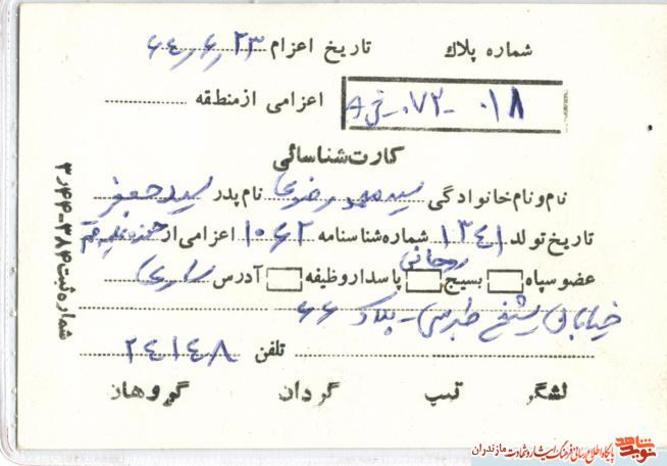 شماره پلاك تاریخ اعزام ۶۴٫۶٫۲۳
۰۱۸-۰۷۲- اعزامی از منطقه
کارت شناسائی
نام و نام خانوادگی سید محمد رضوی نام پدر سید جعفر
تاریخ تولد ۱۳۴۱ شماره شناسنامه ۱۰۶۲ اعزامی از حوزه علمیه قم
روحانی
عضو سپاه بسیج پاسدار وظیفه آدرس ساری
خیابان شیخ طبرسی - پلاک ۶۶
تلفن ۲۴۱۴۸
لشگر تیپ گردان گروهان
شماره ثبت ۳۸۴-۴۴ر۳
نوید شاهد پایگاه اطلاع رسانی فرهنگ ایثار و شهادت مازندران